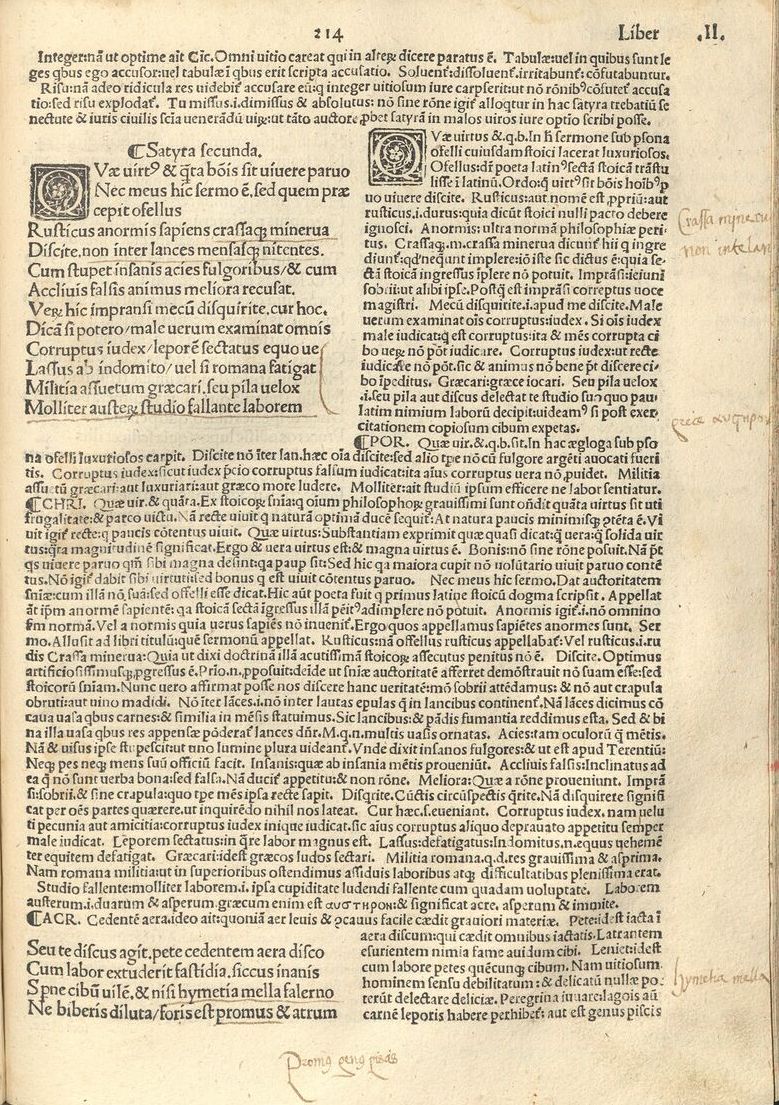 214 Liber .II.
Integer:nã ut optime ait Cic.Omni uitio careat qui in alteꝝ dicere paratus ē. Tabulæ:uel in quibus sunt le
ges qbus ego accusor:uel tabulæ ĩ qbus erit scripta accusatio. Soluent̃:dissoluent̃.irritabunt̃:cõfutabuntur.
Risu:nã adeo ridicula res uidebit̃ accusare eũ:q integer uitiosum iure carpserit:ut nõ rõnibꝰ cõfutet̃ accusa
tio:sed risu explodat̃. Tu missus.i.dimissus & absolutus: nõ sine rõne igit̃ alloqtur in hac satyra trebatiũ se
nectute & iuris ciuilis scĩa uenerãdũ uiꝝ:ut tãto auctore ꝓbet satyrã in malos uiros iure optio scribi posse.
¶Satyra secunda.
QVæ uirtꝰ & q̃ta bõis sit uiuere paruo
Nec meus hic sermo ē.sed quem præ
cepit ofellus
Rusticus anormis sapiens crassaq; minerua
Discite.non inter lances mensasq; nitentes.
Cum stupet insanis acies fulgoribus/& cum
Accliuis falsis animus meliora recusat.
Veꝝ hic impransi mecũ disquirite.cur hoc.
Dicã si potero/male uerum examinat omnis
Corruptus iudex/leporē sectatus equo ue
Lassus ab indomito/uel si romana fatigat
Militia assuetum græcari.seu pila uelox
Molliter austeꝝ studio fallante laborem
QVæ uirtus &.q.b.In h̃ sermone sub psona
ofelli cuiusdam stoici lacerat luxuriosos.
Ofellus:dr̃ poeta latinꝰ sectã stoicã trãstu
lisse ĩ latinũ.Ordo:q̃ uirtꝰ sit bõis hoĩbꝰ p
uo uiuere discite. Rusticus:aut nomē est ꝓpriũ:aut
rusticus.i.durus:quia dicũt stoici nulli pacto debere
ignosci. Anormis: ultra normã philosophiæ peri
tus. Crassaq;.m.crassa minerua dicunt̃ hi q ingre
diunt̃:qd' nequnt implere:iõ iste sic dictus ē:quia se
ctã stoicã ingressus ĩplere nõ potuit. Imprãsi:ieiuni
sobrii:ut alibi ipse.Postq̃ est imprãsi correptus uoce
magistri. Mecũ disquirite.i.apud me discite.Male
uerum examinat oĩs corruptus:iudex. Si oĩs iudex
male iudicat:q̃ est corruptus:ita & mēs corrupta ci
bo ueꝝ nõ põt iudicare. Corruptus iudex:ut recte
iudicare nõ põt.sic & animus nõ bene p̃t discere ci
bo ĩpeditus. Græcari:græce iocari. Seu pila uelox
.i.seu pila aut discus delectat te studio suo quo pau
latim nimium laborũ decipit:uideamꝰ si post exer
citationem copiosum cibum expetas.
¶POR. Quæ uir.&.q.b.sit.In hac ægloga sub pso
na ofelli luxuriosos carpit. Discite nõ ĩter lan.hæc oĩa discite:sed alio tpe nõ cũ fulgore argēti auocati fueri
tis. Corruptus iudex:sicut iudex p̃cio corruptus falsum iudicat:ita aĩus corruptus uera nõ ꝓuidet. Militia
assuetũ græcari:aut luxuriari:aut græco more ludere. Molliter:ait studiũ ipsum efficere ne labor sentiatur.
¶CHRI. Quæ uir.& quãta.Ex stoicoꝝ snĩa:q oĩum philosophoꝝ grauissimi sunt oñdit quãta uirtus sit uti
frugalitate:& parco uictu.Nã recte uiuit q naturã optimã ducē sequit̃:At natura paucis minimisq; cõtēta ē.Vi
uit igit̃ recte:q paucis cõtentus uiuit. Quæ uirtus:Substantiam exprimit quæ quasi dicat:q̃ uera:q̃ solida uir
tus:q̃ta magnitudinē significat.Ergo & uera uirtus est:& magna uirtus ē. Bonis:nõ sine rõne posuit.Nã p̃t
qs uiuere paruo qm̃ sibi magna desint:qa paup sit:Sed hic qa maiora cupit nõ uolũtario uiuit paruo contē
tus.Nõ igit̃ dabit̃ sibi uirtuti:sed bonus q est uiuit cõtentus paruo. Nec meus hic sermo.Dat auctoritatem
snĩæ:cum illã nõ suã:sed offelli esse dicat.Hic aũt poeta fuit q primus latine stoicũ dogma scripsit. Appellat
aũt ĩpm anormē sapientē: qa stoicã sectã ĩgressus illã pēitꝰ adimplere nõ potuit. Anormis igit̃.i.nõ omnino
fm̃ normã.Vel a normis quia uerus sapiēs nõ inuenit̃.Ergo quos appellamus sapiētes anormes sunt. Ser
mo.Allusit ad libri titulũ:quē sermonũ appellat. Rusticus:nã offellus rusticus appellabat̃:Vel rusticus.i.ru
dis Crassa minerua:Quia ut dixi doctrinã illã acutissimã stoicoꝝ assecutus penitus nõ ē. Discite.Optimus
artificiosissimusq; ꝓgressus ē.Prio.n.ꝓposuit:deĩde ut snĩæ auctoritatē afferret demõstrauit nõ suam esse:sed
stoicorũ snĩam.Nunc uero affirmat posse nos discere hanc ueritatē:mõ sobrii attēdamus: & nõ aut crapula
obruti:aut uino madidi. Nõ ĩter lãces.i.nõ inter lautas epulas q̃ in lancibus continent̃.Nã lãces dicimus cõ
caua uasa qbus carnes:& similia in mēsis statuimus.Sic lancibus:& pãdis fumantia reddimus exta. Sed & bi
na illa uasa qbus res appensæ põderat̃ lances dñr.M.q.n:multis uasis ornatas. Acies:tam oculorũ q̃ mētis.
Nã & uisus ipse stupescit:ut uno lumine plura uideant̃.Vnde dixit insanos fulgores:& ut est apud Terentiũ:
Neq; pes neq; mens suũ officiũ facit. Insanis:quæ ab insania mētis proueniũt. Accliuis falsis:Inclinatus ad
ea q̃ nõ sunt uerba bona:sed falsa.Nã ducit̃ appetitu:& non rõne. Meliora:Quæ a rõne proueniunt. Imprã
si:sobrii.& sine crapula:quo tpe mēs ipsa recte sapit. Disqrite.Cũctis circũspectis q̃rite.Nã disquirere signifi
cat per oēs partes quærere.ut inquirēdo nihil nos lateat. Cur hæc.s.eueniant. Corruptus iudex.nam uelu
ti pecunia aut amicitia:corruptus iudex inique iudicat.sic aĩus corruptus aliquo deprauato appetitu semper
male iudicat. Leporem sectatus:in q̃re labor magnus est. Lassus:defatigatus:Indomitus.n.equus uehemē
ter equitem defatigat. Græcari:idest græcos ludos sectari. Militia romana.q.d.res grauissima & asprima.
Nam romana militia:ut in superioribus ostendimus assiduis laboribus atq; difficultatibus plenissima erat.
Studio fallente:molliter laborem.i. ipsa cupiditate ludendi fallente cum quadam uoluptate. Laborem
austerum.i.duarum & asperum.græcum enim est αυστηρον:& significat acre. asperum & immite.
¶ACR. Cedentē aera.ideo ait:quoniã aer leuis & ꝯcauus facile cædit grauiori materiæ. Pete:idest iacta ĩ
aera discum:qui cædit omnibus iactatis.Latrantem
esurientem nimia fame auidum cibi. Leniet:idest
cum labore petes quēcunq; cibum. Nam uitiosum
hominem sensu debilitatum:& delicatũ nullæ po
terũt delectare deliciæ. Peregrina iuuare:lagois aũ
carnē leporis habere perhibet̃: aut est genus piscis
Seu te discus agit.pete cedentem aera disco
Cum labor extuderit fastidia.siccus inanis
Sperne cibũ uilē.& nisi hymetia mella falerno
Ne biberis diluta/foris est promus & atrum
Crassa minerua
non intelan
græce αυστηρον
hymetia mella
Promꝰ genꝰ piscis